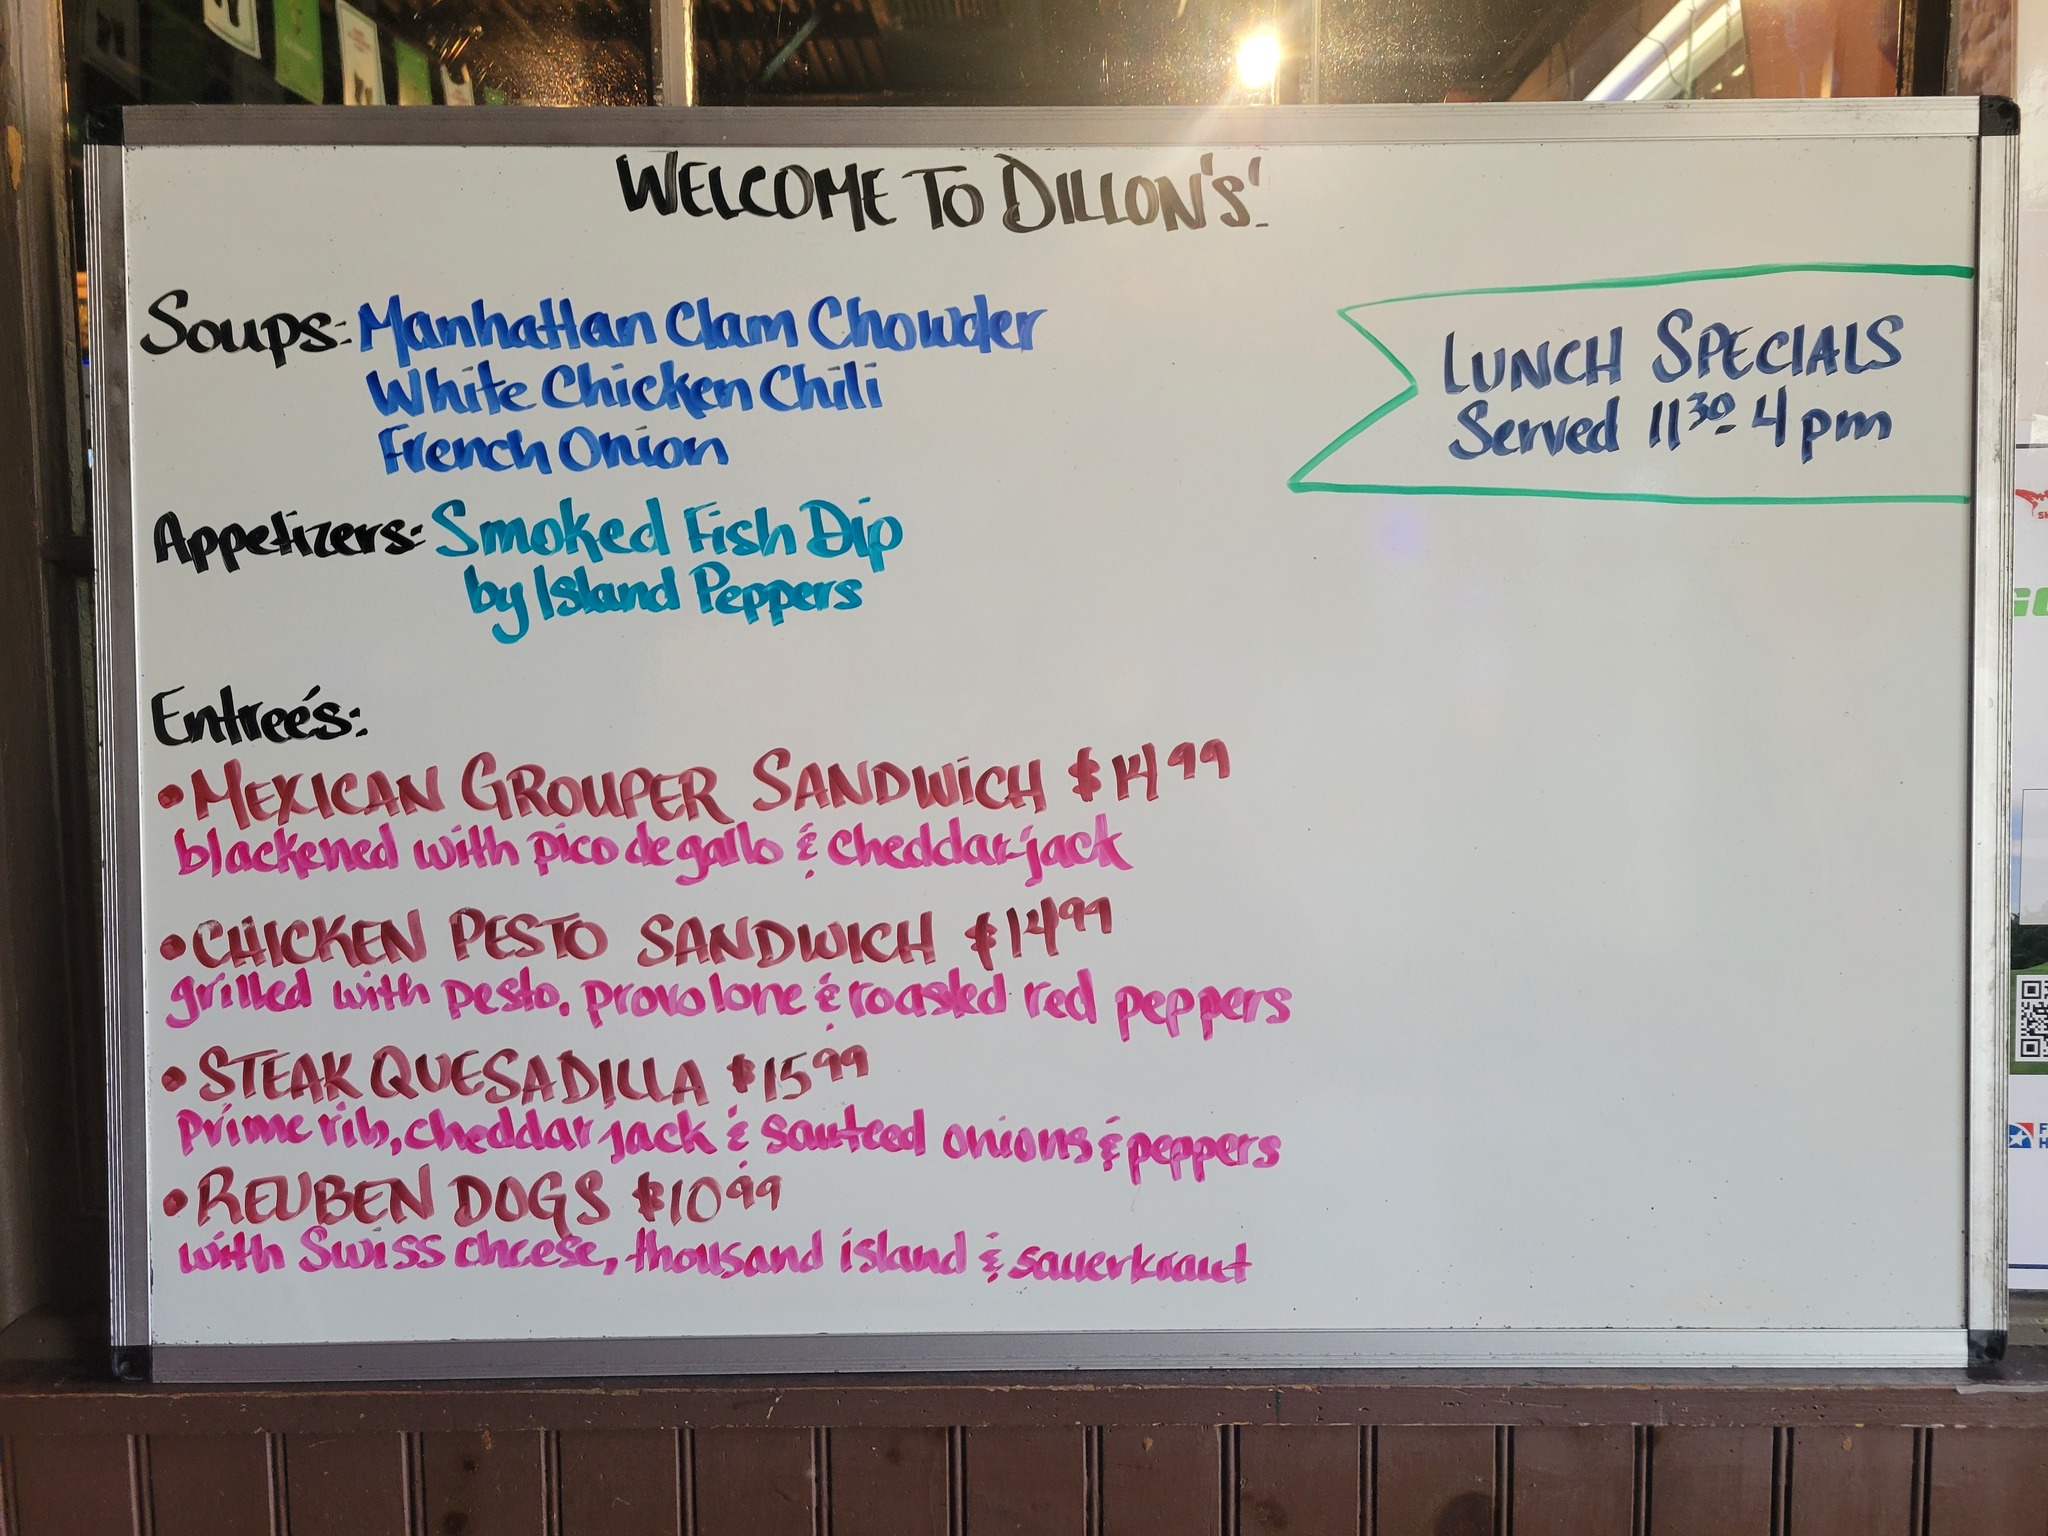 WELCOME TO DILLON'S!
Soups: Manhattan Clam Chowder
White Chicken Chili
French Onion
LUNCH SPECIALS
Served 11³⁰ 4pm
Appetizers: Smoked Fish Dip
by Island Peppers
Entreé's:
• MEXICAN GROUPER SANDWICH $14⁹⁹
blackened with pico de gallo & cheddar-jack
• CHICKEN PESTO SANDWICH $14⁹⁹
grilled with pesto, provolone & roasted red peppers
• STEAK QUESADILLA $15⁹⁹
prime rib, cheddar jack & sauteed onions & peppers
• REUBEN DOGS $10⁹⁹
with Swiss cheese, thousand island & sauerkraut